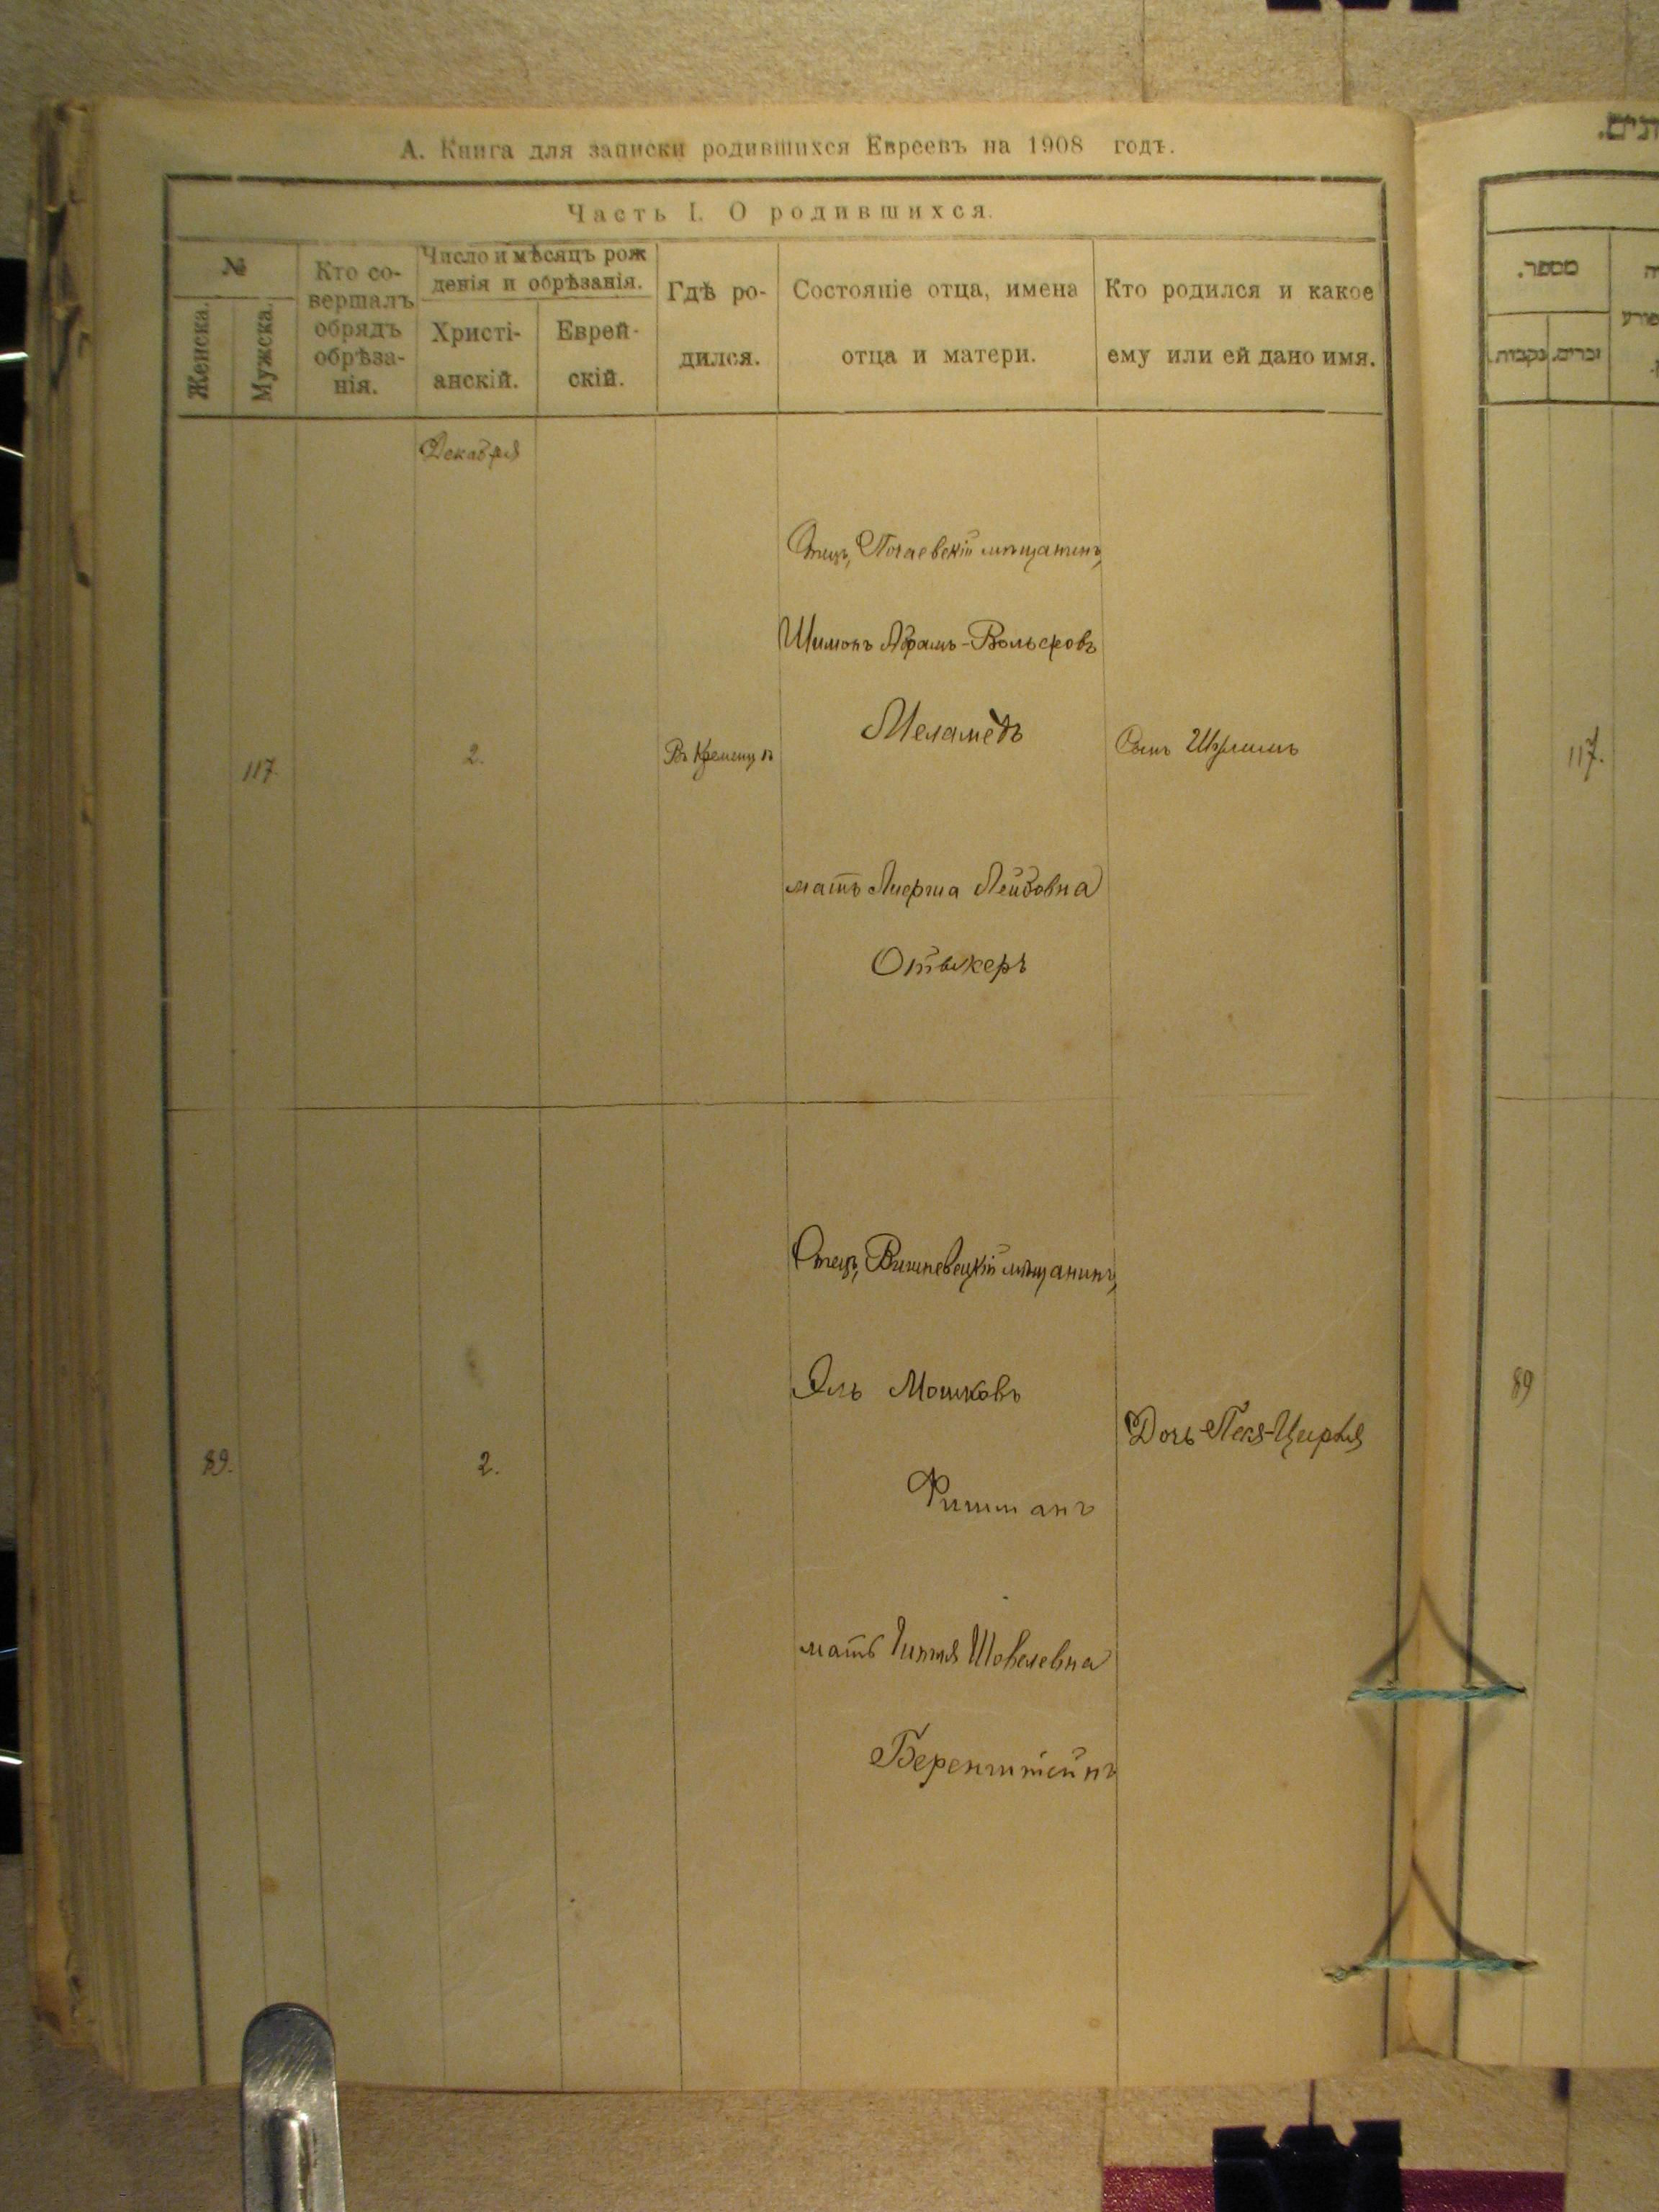 А. Книга для записки родившихся Евреевъ на 1908 годъ.
Часть I. О родившихся.
№
Женска.
Мужска.
Кто со-
вершалъ
обрядъ
обрѣза-
нія.
Число и мѣсяцъ рож
денія и обрѣзанія.
Христі-
анскій.
Еврей-
скій.
Гдѣ ро-
дился.
Состояніе отца, имена
отца и матери.
Кто родился и какое
ему или ей дано имя.
Декабря
117
2.
Въ Кременцѣ
Отецъ, Почаевскій мѣщанинъ,
Шимонъ Абрамъ-Вольфовъ
Меламедъ
мать Лейбовна
Отыкеръ
Сынъ
89.
2.
Отецъ, Вишневецкій мѣщанинъ,
Эль Мошковъ
Фишманъ
мать Шовелевна
Беренштейнъ
Дочь
מספר.
זכרים.
נקבות.
117.
89